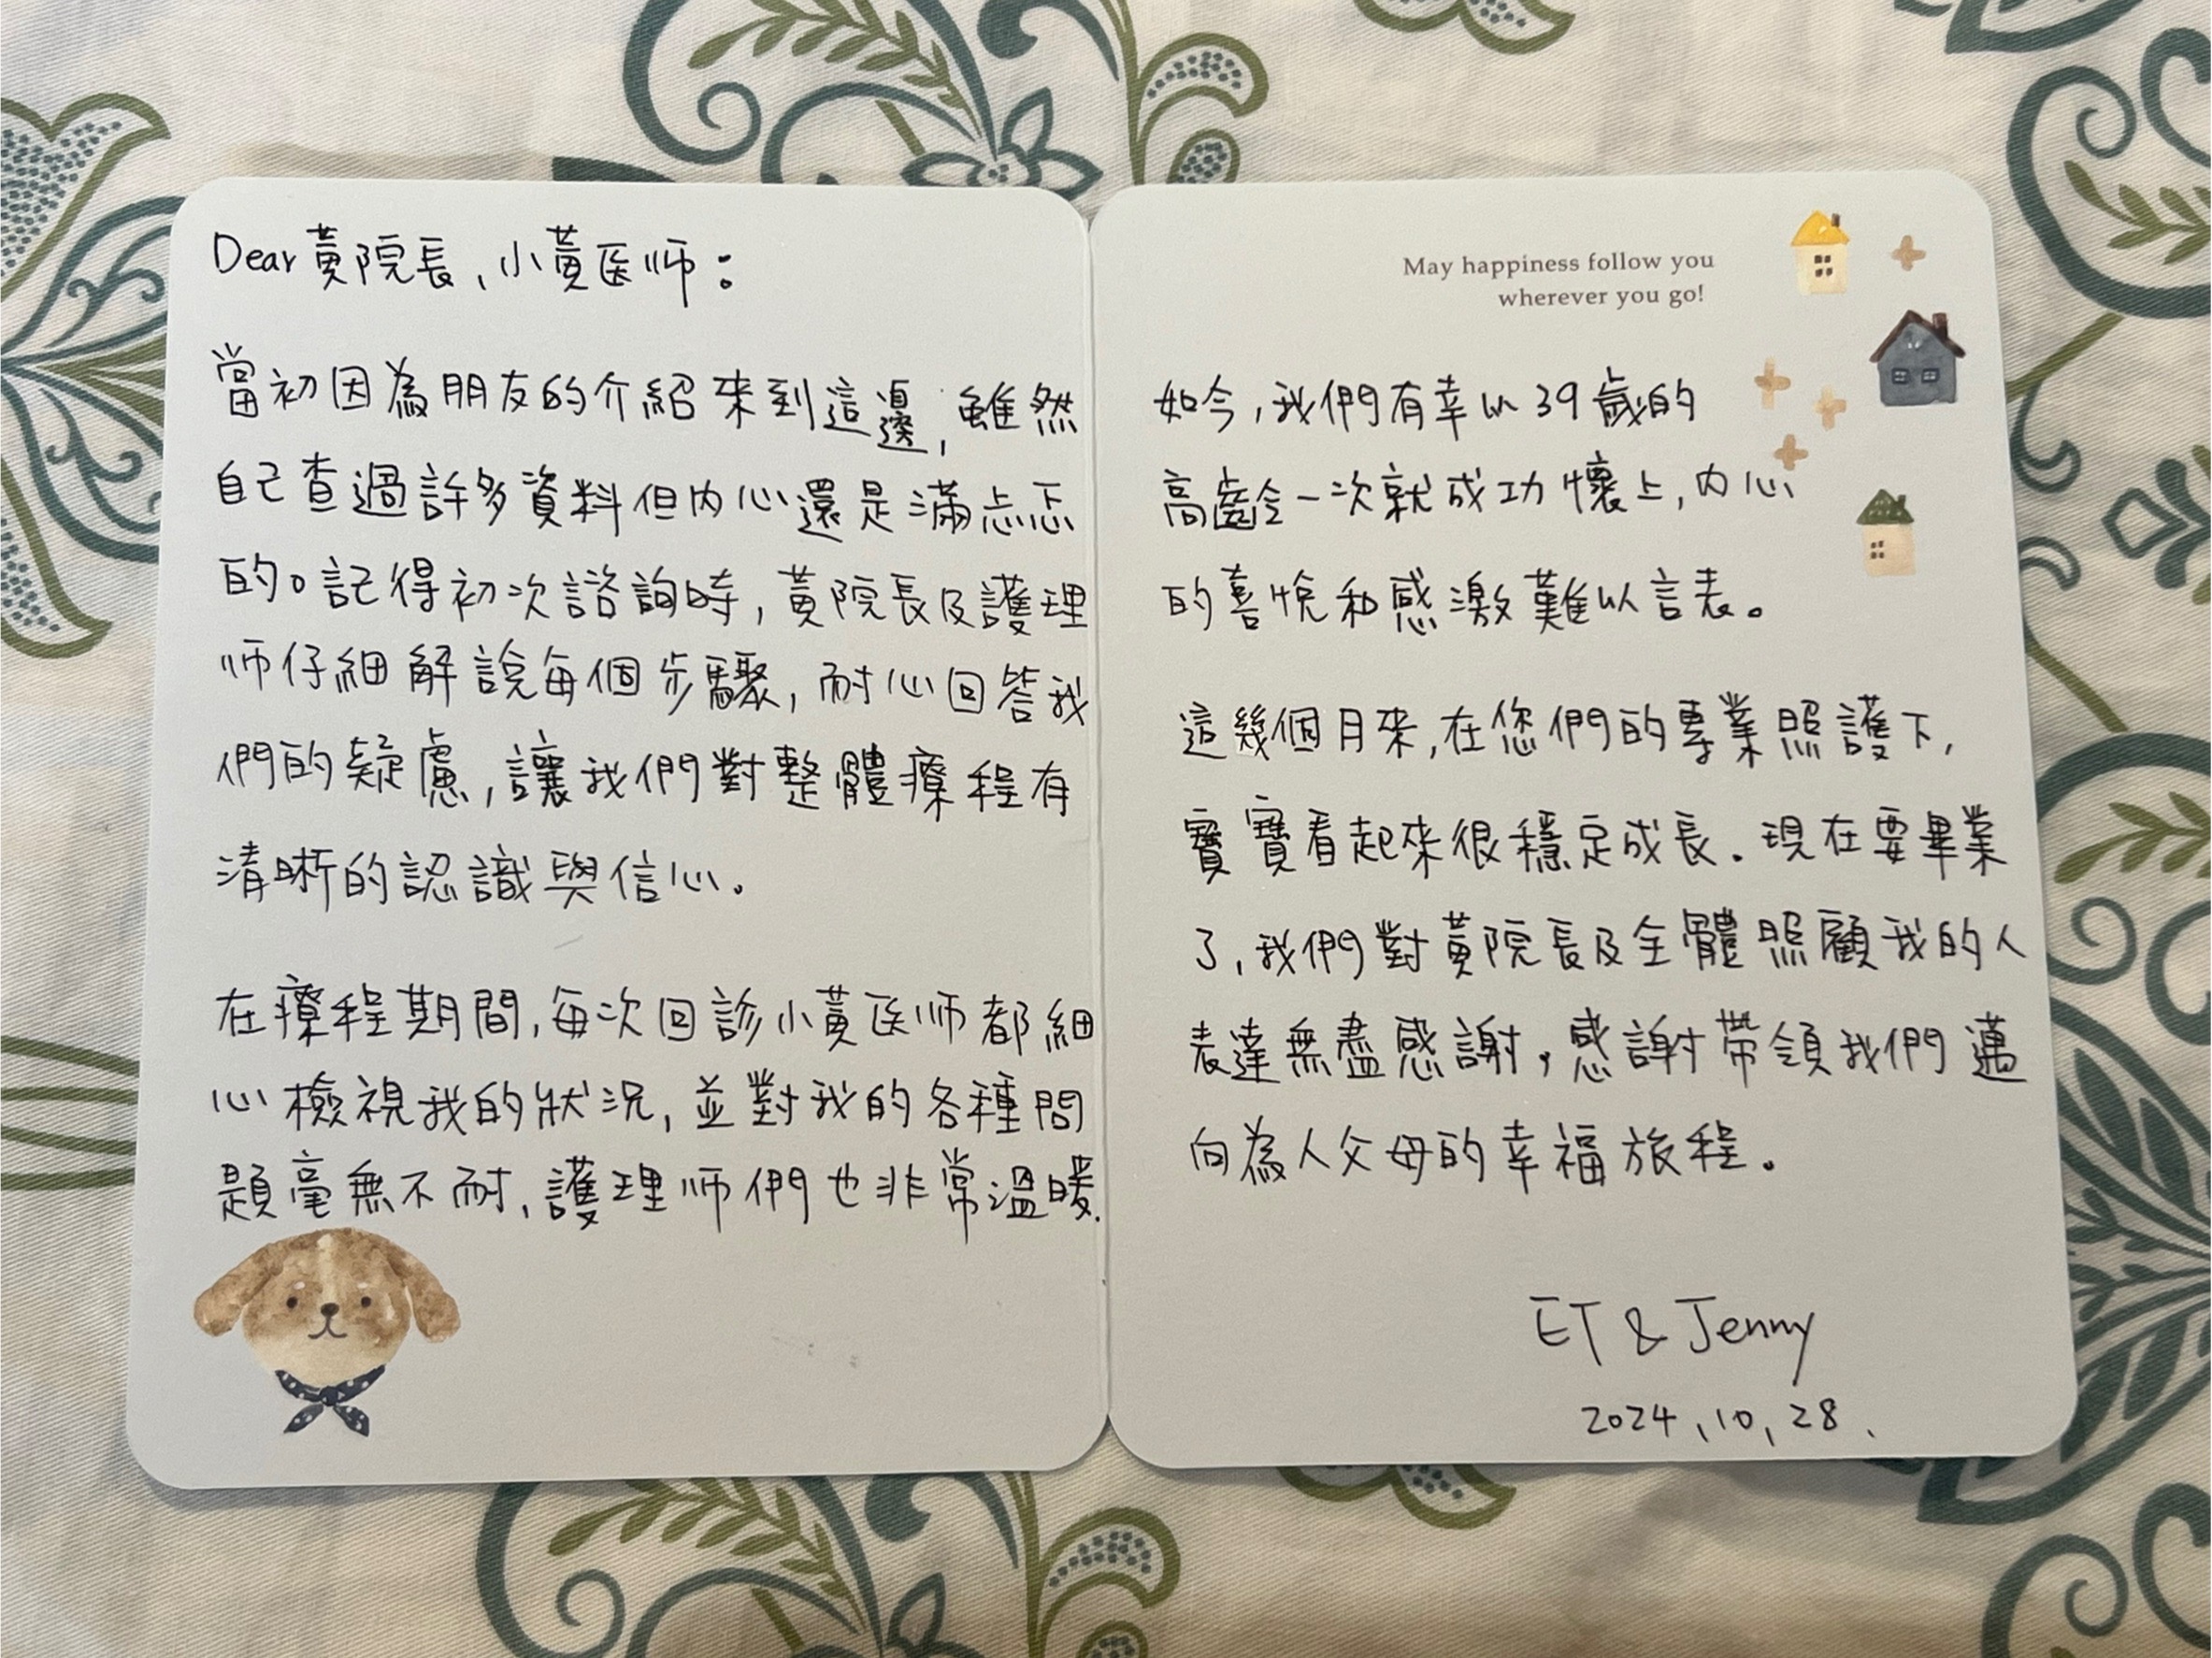 Dear 黃院長,小黃医师：
當初因為朋友的介紹來到這邊,雖然
自己查過許多資料但內心還是滿忐忑
的。記得初次諮詢時,黃院長及護理
师仔細解說每個步驟,耐心回答我
們的疑慮,讓我們對整體療程有
清晰的認識與信心。
在療程期間,每次回診小黃医师都細
心檢視我的狀況,並對我的各種問
題毫無不耐,護理师們也非常溫暖.
May happiness follow you
wherever you go!
如今,我們有幸以39歲的
高齡一次就成功懷上,內心
的喜悅和感激難以言表。
這幾個月來,在您們的專業照護下,
寶寶看起來很穩定成長。現在要畢業
了,我們對黃院長及全體照顧我的人
表達無盡感謝,感謝帶領我們邁
向為人父母的幸福旅程。
ET & Jenny
2024,10,28.